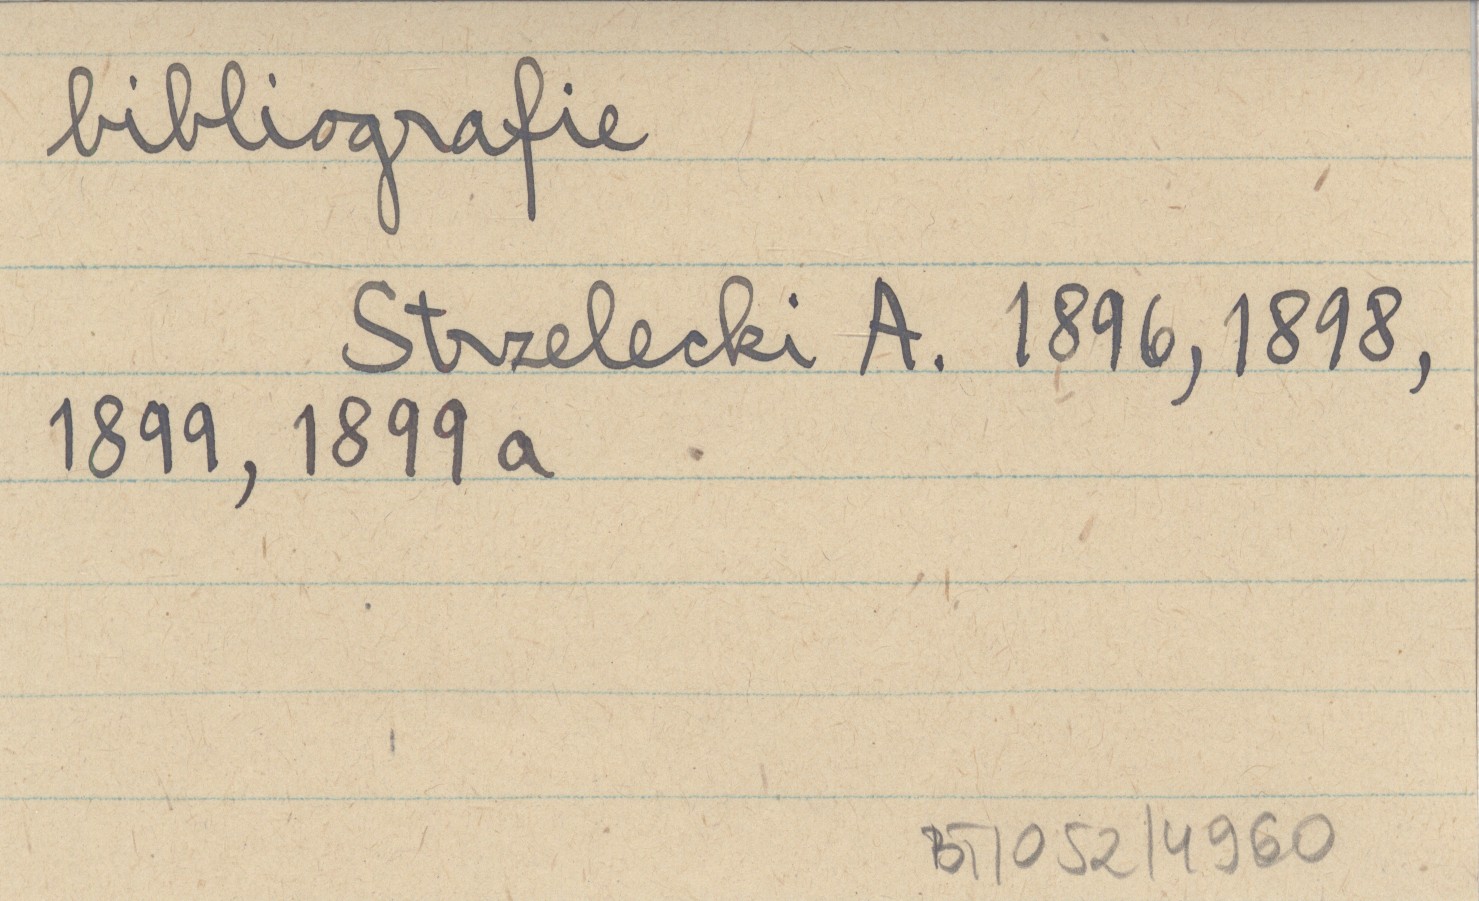 bibliografie
Strzelecki A. 1896, 1898,
1899, 1899 a
BT/052/4960